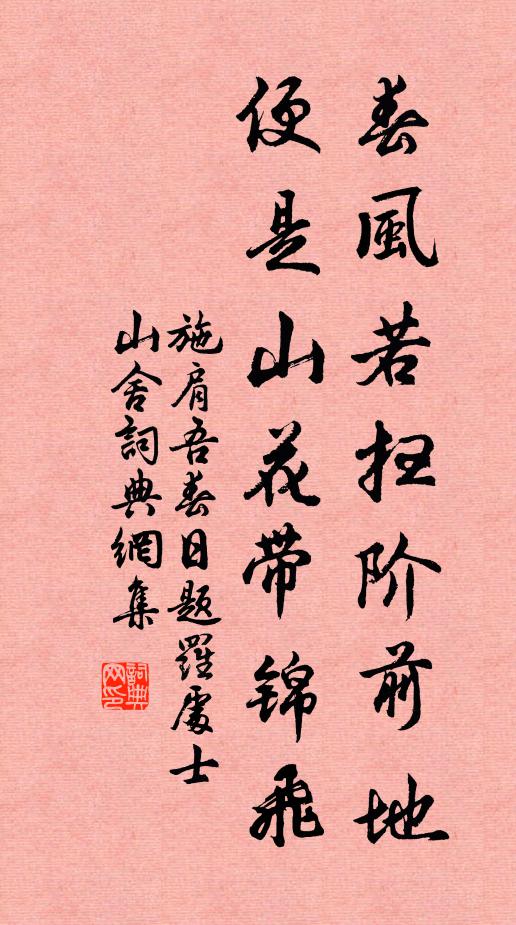 春風若扫阶前地
便是山花带锦飛
施肩吾春日题羅處士
山舍詞典網集
詞典
网印